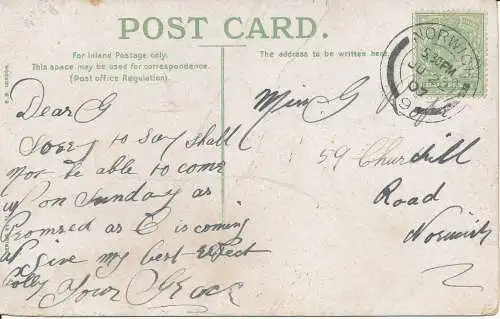 POST CARD.
For Inland Postage only.
This space may be used for correspondence.
(Post office Regulation).
The address to be written here.
NORWICH
5.30PM
Dear G
Sorry to say shall
not be able to come
up on Sunday as
Promised as C is coming
Give my best respect
Your Grace
Miss G
59 Churchill
Road
Norwich